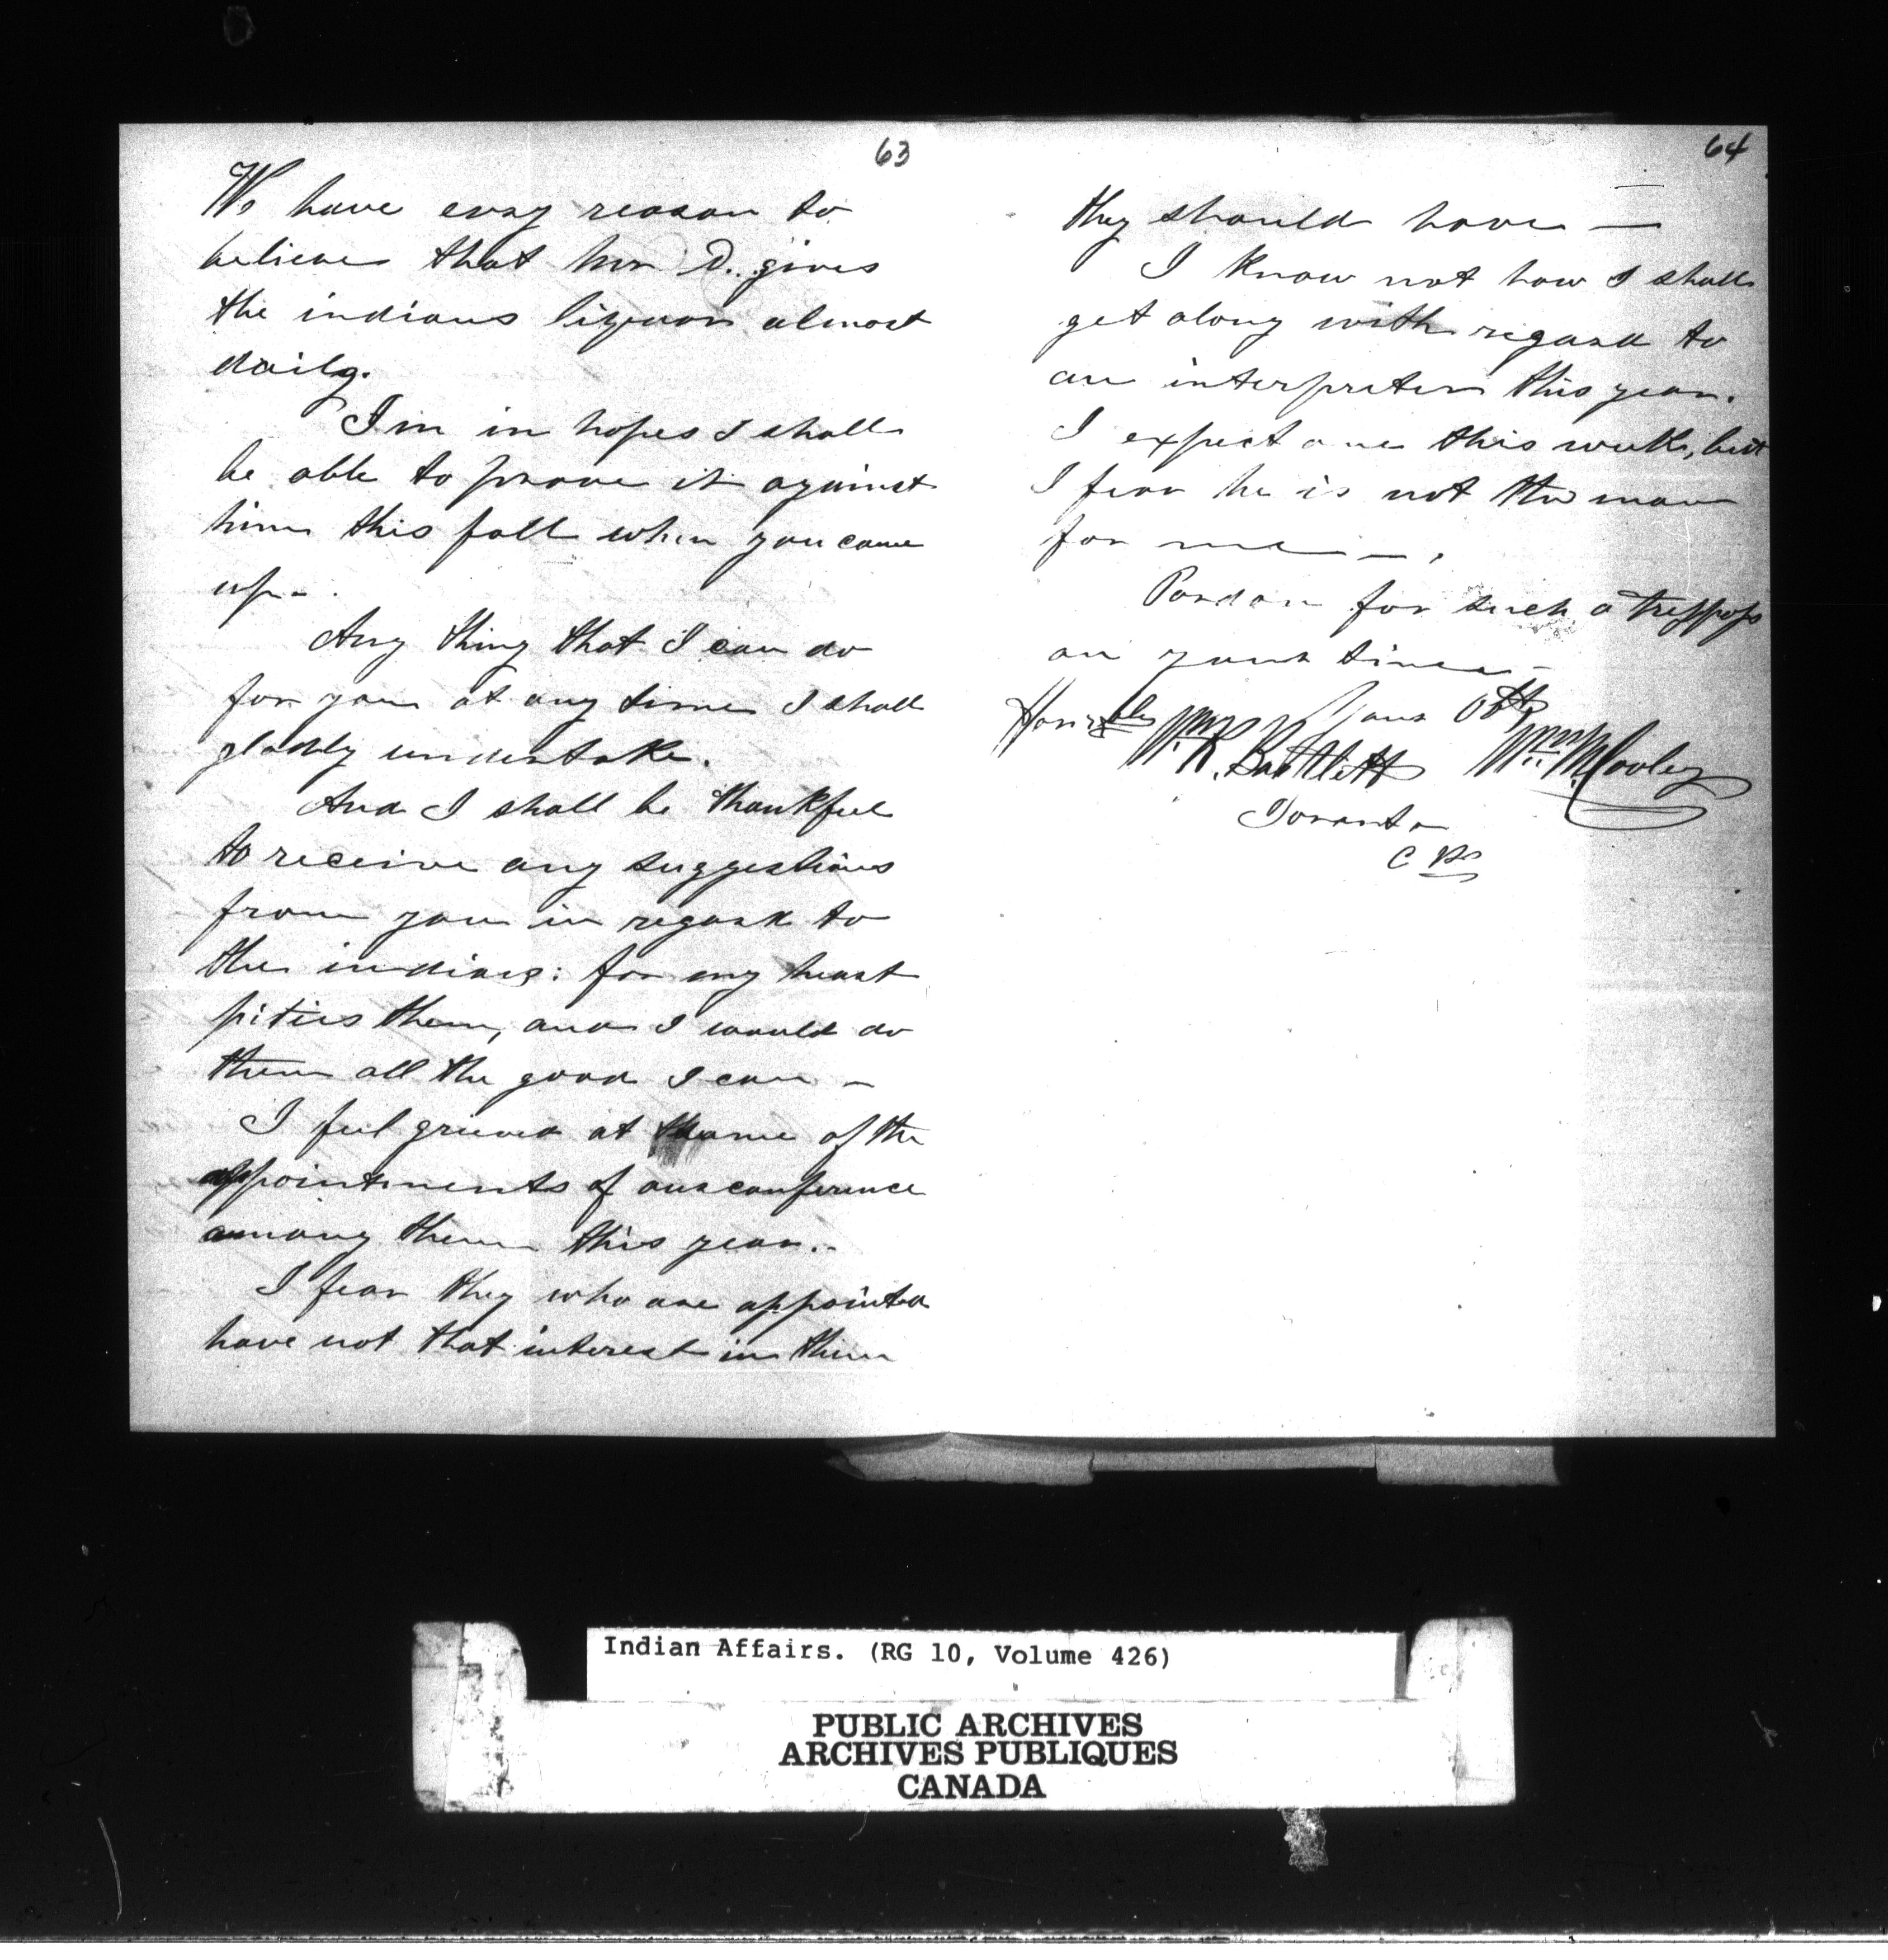 63
We have every reason to
believe that Mr D. gives
the indians liquor almost
daily.
I'm in hopes I shall
be able to prove it against
him this fall when you come
up -.
Any thing that I can do
for you at any time I shall
gladly undertake.
And I shall be thankful
to receive any suggestions
from you in regard to
the indians: for my heart
pities them, and I would do
them all the good I can -
I feel grieved at some of the
appointments of our conference
among them this year. -
I fear they who are appointed
have not that interest in them
64
they should have —
I know not how I shall
get along with regard to
an interpreter this year.
I expect one this week, but
I fear he is not the man
for me — .
Pardon for such a tresspass
on your time -
Your Obt
Honrble Wm R. Bartlett Wm M. Cooley
Toronto
C W
Indian Affairs. (RG 10, Volume 426)
PUBLIC ARCHIVES
ARCHIVES PUBLIQUES
CANADA